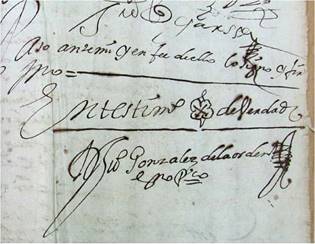 Paso ante mi y en fe dello lo signo y fir
mo =
En testimº de verdad
Gonzalez de la orden
es no pco